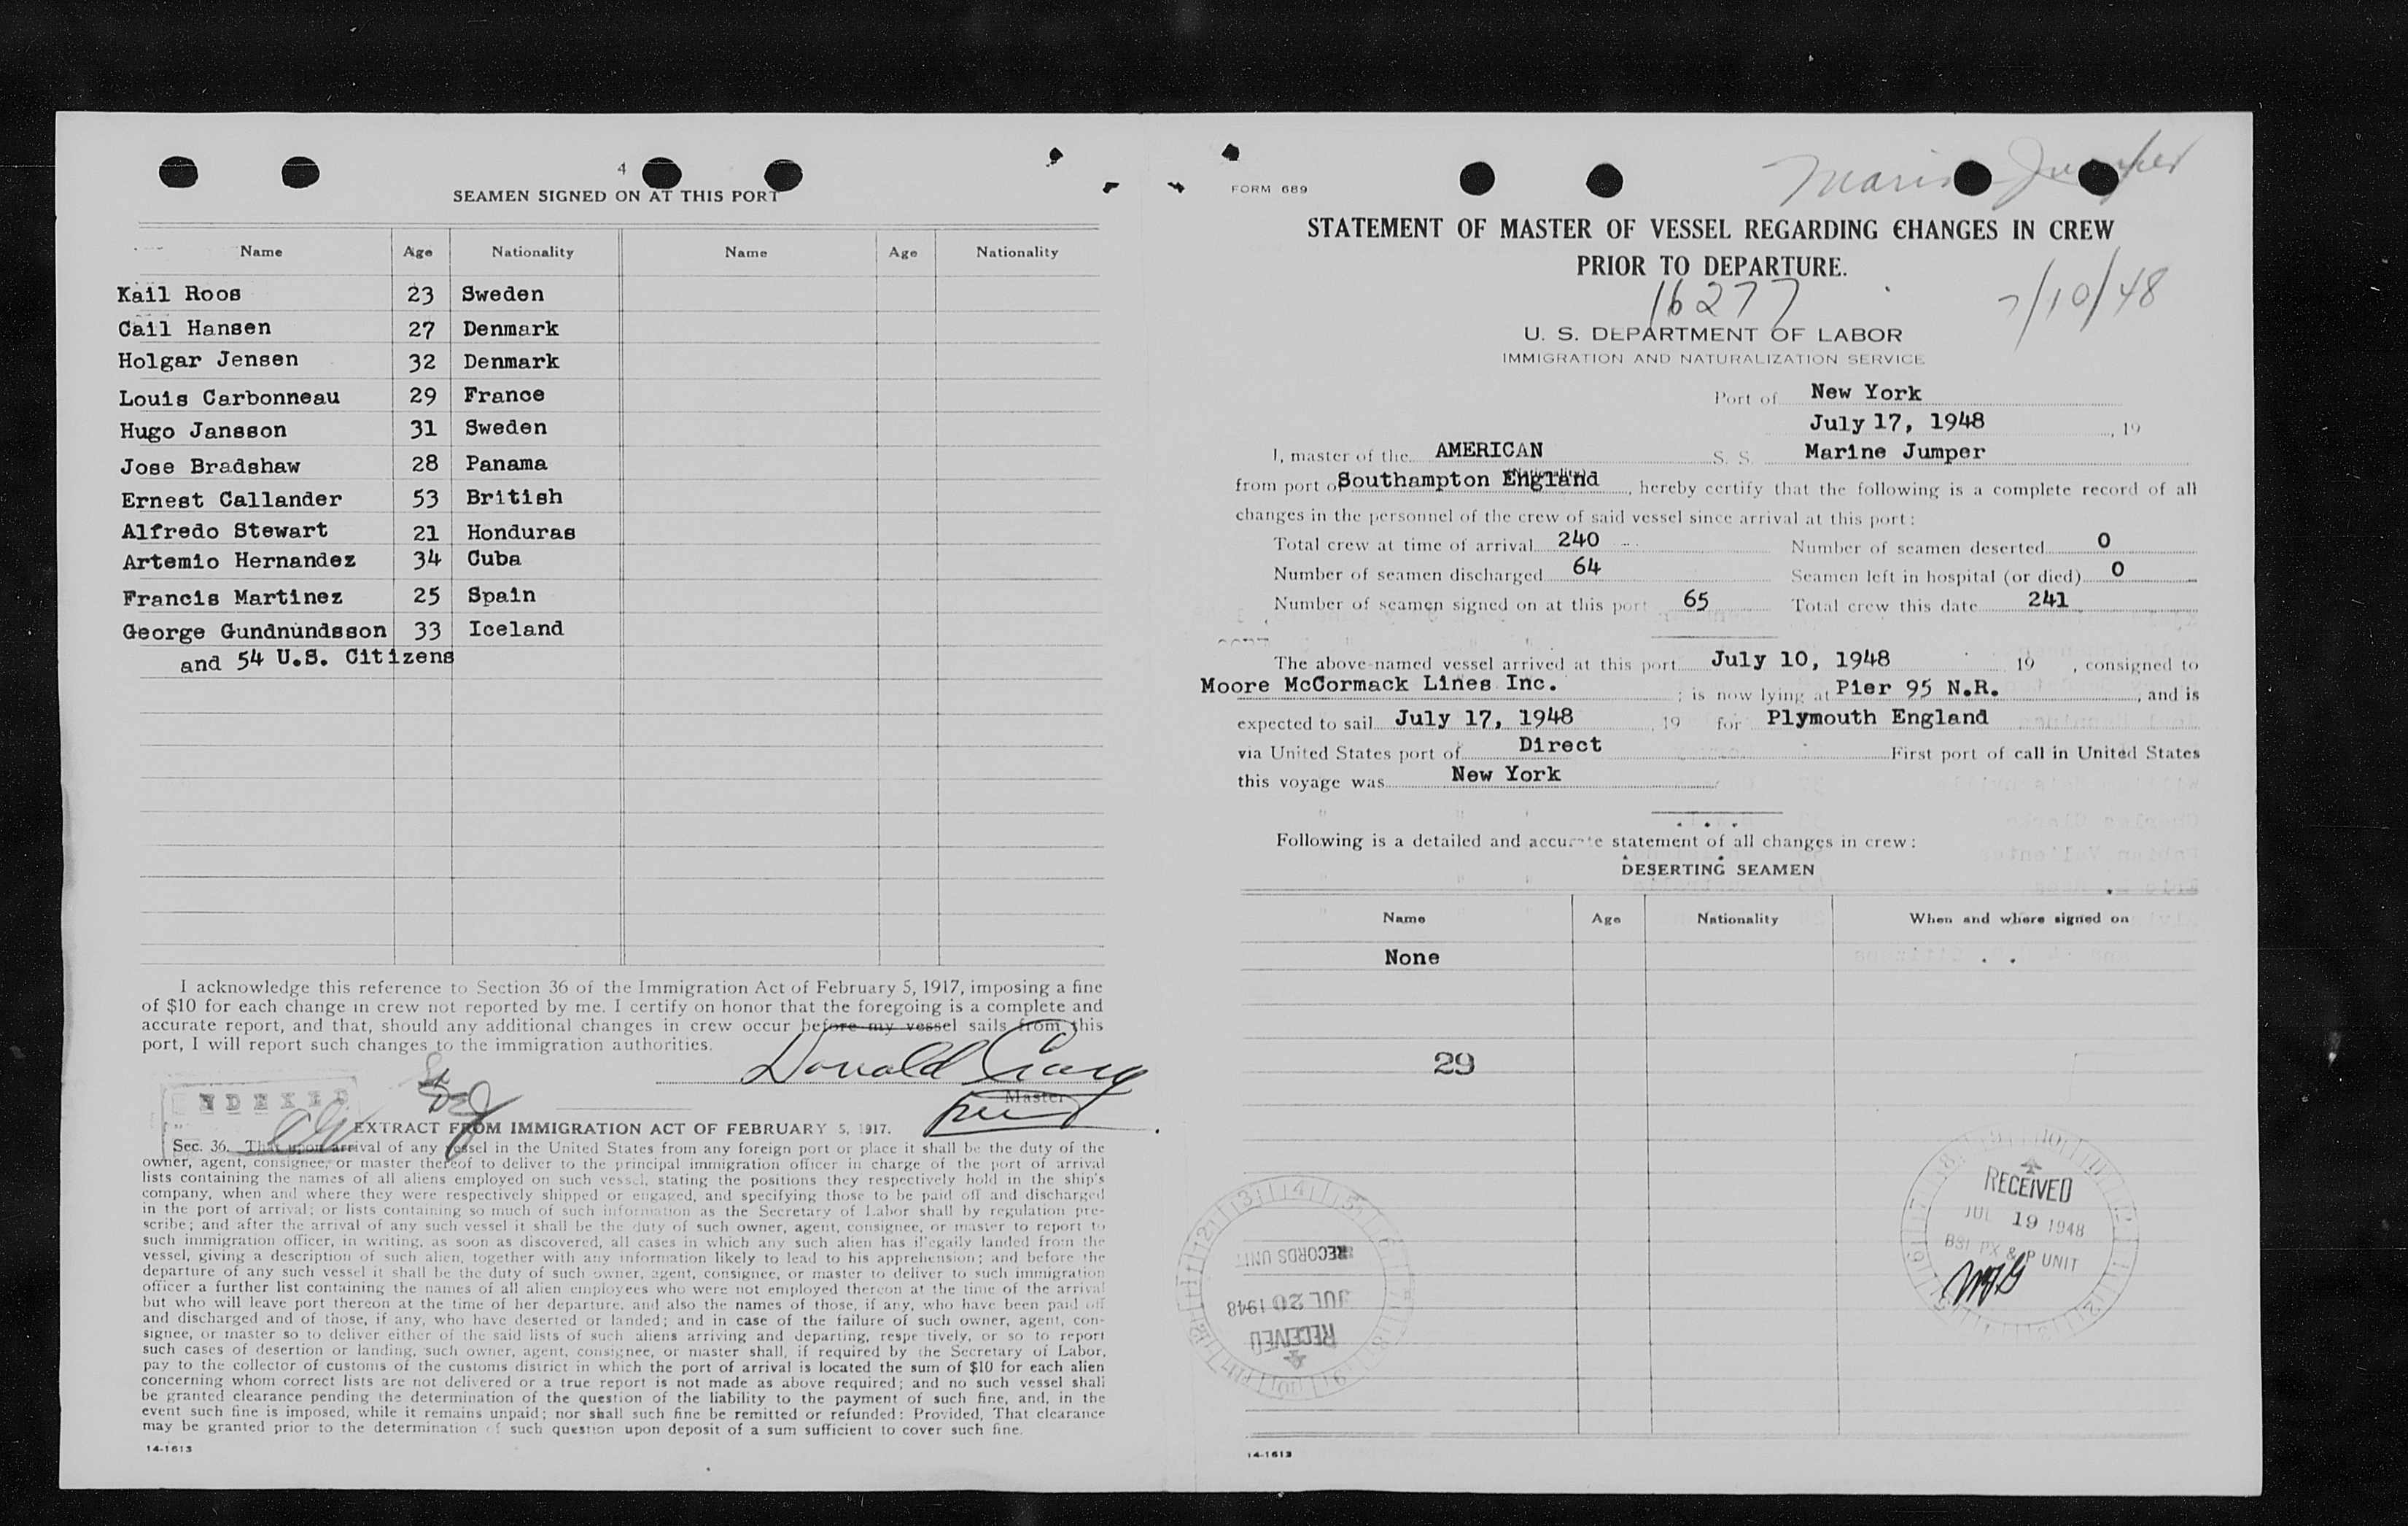 4
SEAMEN SIGNED ON AT THIS PORT
Name Age Nationality Name Age Nationality
Kail Roos 23 Sweden
Cail Hansen 27 Denmark
Holgar Jensen 32 Denmark
Louis Carbonneau 29 France
Hugo Jansson 31 Sweden
Jose Bradshaw 28 Panama
Ernest Callander 53 British
Alfredo Stewart 21 Honduras
Artemio Hernandez 34 Cuba
Francis Martinez 25 Spain
George Gundnundsson 33 Iceland
and 54 U.S. Citizens
I acknowledge this reference to Section 36 of the Immigration Act of February 5, 1917, imposing a fine
of $10 for each change in crew not reported by me. I certify on honor that the foregoing is a complete and
accurate report, and that, should any additional changes in crew occur before my vessel sails from this
port, I will report such changes to the immigration authorities.
Donald
Master
INDEXED
EXTRACT FROM IMMIGRATION ACT OF FEBRUARY 5, 1917.
Sec. 36. That upon arrival of any vessel in the United States from any foreign port or place it shall be the duty of the
owner, agent, consignee, or master thereof to deliver to the principal immigration officer in charge of the port of arrival
lists containing the names of all aliens employed on such vessel, stating the positions they respectively hold in the ship's
company, when and where they were respectively shipped or engaged, and specifying those to be paid off and discharged
in the port of arrival; or lists containing so much of such information as the Secretary of Labor shall by regulation pre-
scribe; and after the arrival of any such vessel it shall be the duty of such owner, agent, consignee, or master to report to
such immigration officer, in writing, as soon as discovered, all cases in which any such alien has illegally landed from the
vessel, giving a description of such alien, together with any information likely to lead to his apprehension; and before the
departure of any such vessel it shall be the duty of such owner, agent, consignee, or master to deliver to such immigration
officer a further list containing the names of all alien employees who were not employed thereon at the time of the arrival
but who will leave port thereon at the time of her departure, and also the names of those, if any, who have been paid off
and discharged and of those, if any, who have deserted or landed; and in case of the failure of such owner, agent, con-
signee, or master so to deliver either of the said lists of such aliens arriving and departing, respectively, or so to report
such cases of desertion or landing, such owner, agent, consignee, or master shall, if required by the Secretary of Labor,
pay to the collector of customs of the customs district in which the port of arrival is located the sum of $10 for each alien
concerning whom correct lists are not delivered or a true report is not made as above required; and no such vessel shall
be granted clearance pending the determination of the question of the liability to the payment of such fine, and, in the
event such fine is imposed, while it remains unpaid; nor shall such fine be remitted or refunded: Provided, That clearance
may be granted prior to the determination of such question upon deposit of a sum sufficient to cover such fine.
14-1613
FORM 689
Marine Jumper
STATEMENT OF MASTER OF VESSEL REGARDING CHANGES IN CREW
PRIOR TO DEPARTURE.
16277 7/10/48
U. S. DEPARTMENT OF LABOR
IMMIGRATION AND NATURALIZATION SERVICE
Port of New York
July 17, 1948, 19
I, master of the AMERICAN S. S. Marine Jumper
(Nationality)
from port of Southampton England, hereby certify that the following is a complete record of all
changes in the personnel of the crew of said vessel since arrival at this port:
Total crew at time of arrival 240 Number of seamen deserted 0
Number of seamen discharged 64 Seamen left in hospital (or died) 0
Number of seamen signed on at this port 65 Total crew this date 241
The above-named vessel arrived at this port July 10, 1948 19 , consigned to
Moore McCormack Lines Inc. ; is now lying at Pier 95 N.R., and is
expected to sail July 17, 1948, 19 for Plymouth England
via United States port of Direct First port of call in United States
this voyage was New York
Following is a detailed and accurate statement of all changes in crew:
DESERTING SEAMEN
Name Age Nationality When and where signed on
None
29
RECEIVED
JUL 19 1948
BSI PX & P UNIT
RECEIVED
JUL 20 1948
RECORDS UNIT
14-1613